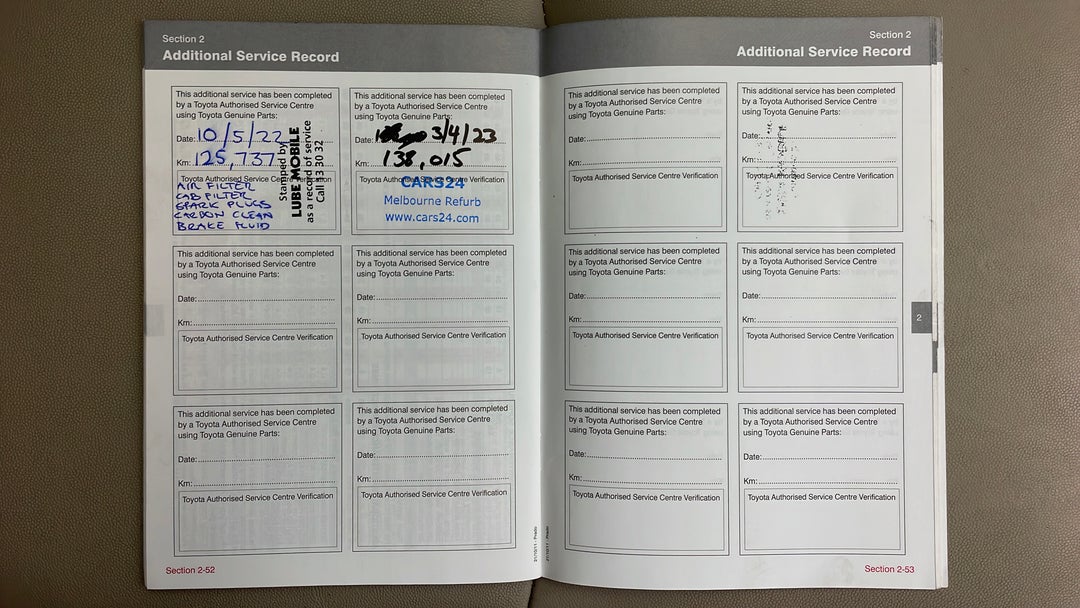 Section 2
Additional Service Record
This additional service has been completed
by a Toyota Authorised Service Centre
using Toyota Genuine Parts:
Date: 10/5/22
Km: 125,737
Toyota Authorised Service Centre Verification
AIR FILTER
CAB FILTER
SPARK PLUGS
CARBON CLEAN
BRAKE FLUID
Stamped by
LUBE MOBILE
as a record of service
Call 13 30 32
This additional service has been completed
by a Toyota Authorised Service Centre
using Toyota Genuine Parts:
Date: 3/4/23
Km: 138,015
Toyota Authorised Service Centre Verification
CARS24
Melbourne Refurb
www.cars24.com
This additional service has been completed
by a Toyota Authorised Service Centre
using Toyota Genuine Parts:
Date:
Km:
Toyota Authorised Service Centre Verification
This additional service has been completed
by a Toyota Authorised Service Centre
using Toyota Genuine Parts:
Date:
Km:
Toyota Authorised Service Centre Verification
This additional service has been completed
by a Toyota Authorised Service Centre
using Toyota Genuine Parts:
Date:
Km:
Toyota Authorised Service Centre Verification
This additional service has been completed
by a Toyota Authorised Service Centre
using Toyota Genuine Parts:
Date:
Km:
Toyota Authorised Service Centre Verification
Section 2-52
Section 2
Additional Service Record
This additional service has been completed
by a Toyota Authorised Service Centre
using Toyota Genuine Parts:
Date:
Km:
Toyota Authorised Service Centre Verification
This additional service has been completed
by a Toyota Authorised Service Centre
using Toyota Genuine Parts:
Date:
Km:
Toyota Authorised Service Centre Verification
This additional service has been completed
by a Toyota Authorised Service Centre
using Toyota Genuine Parts:
Date:
Km:
Toyota Authorised Service Centre Verification
This additional service has been completed
by a Toyota Authorised Service Centre
using Toyota Genuine Parts:
Date:
Km:
Toyota Authorised Service Centre Verification
2
This additional service has been completed
by a Toyota Authorised Service Centre
using Toyota Genuine Parts:
Date:
Km:
Toyota Authorised Service Centre Verification
This additional service has been completed
by a Toyota Authorised Service Centre
using Toyota Genuine Parts:
Date:
Km:
Toyota Authorised Service Centre Verification
Section 2-53